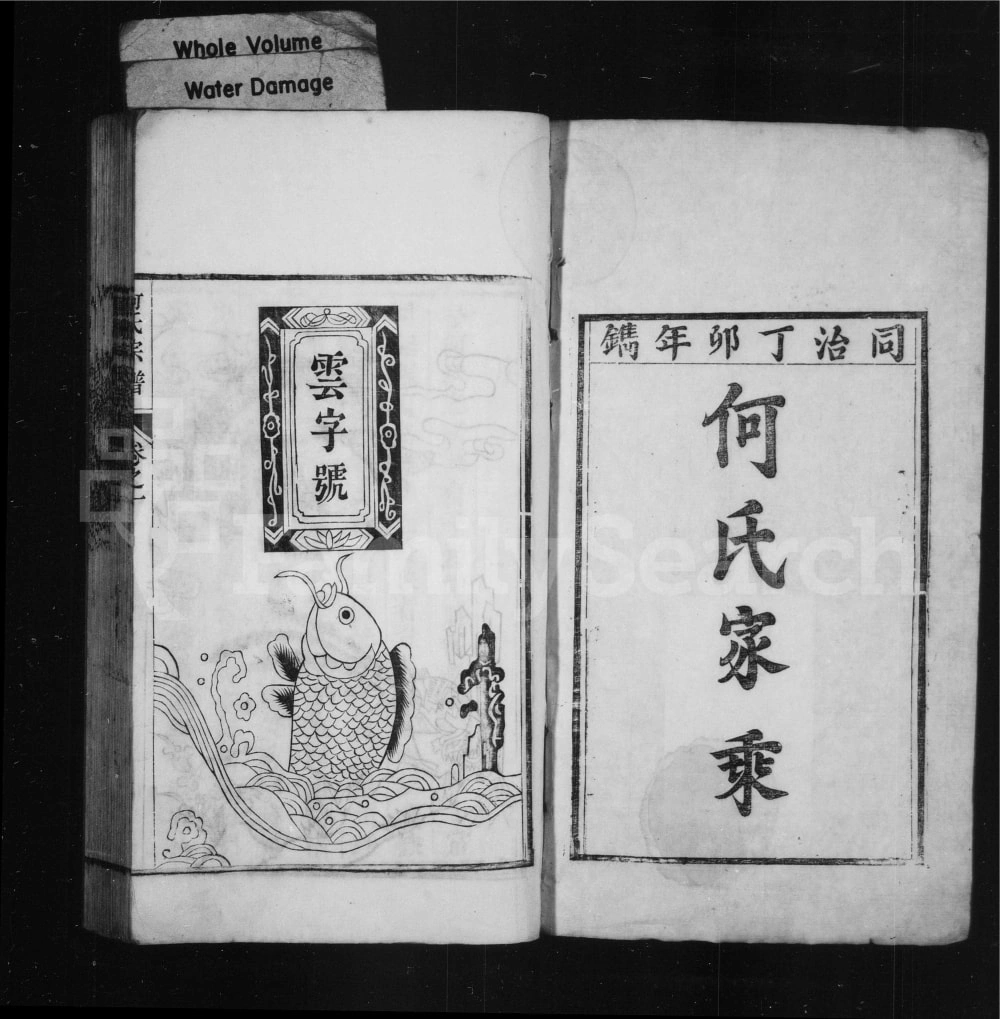 Whole Volume
Water Damage
同治丁卯年鐫
何氏家乘
雲字號
何氏宗譜
卷之一
FamilySearch